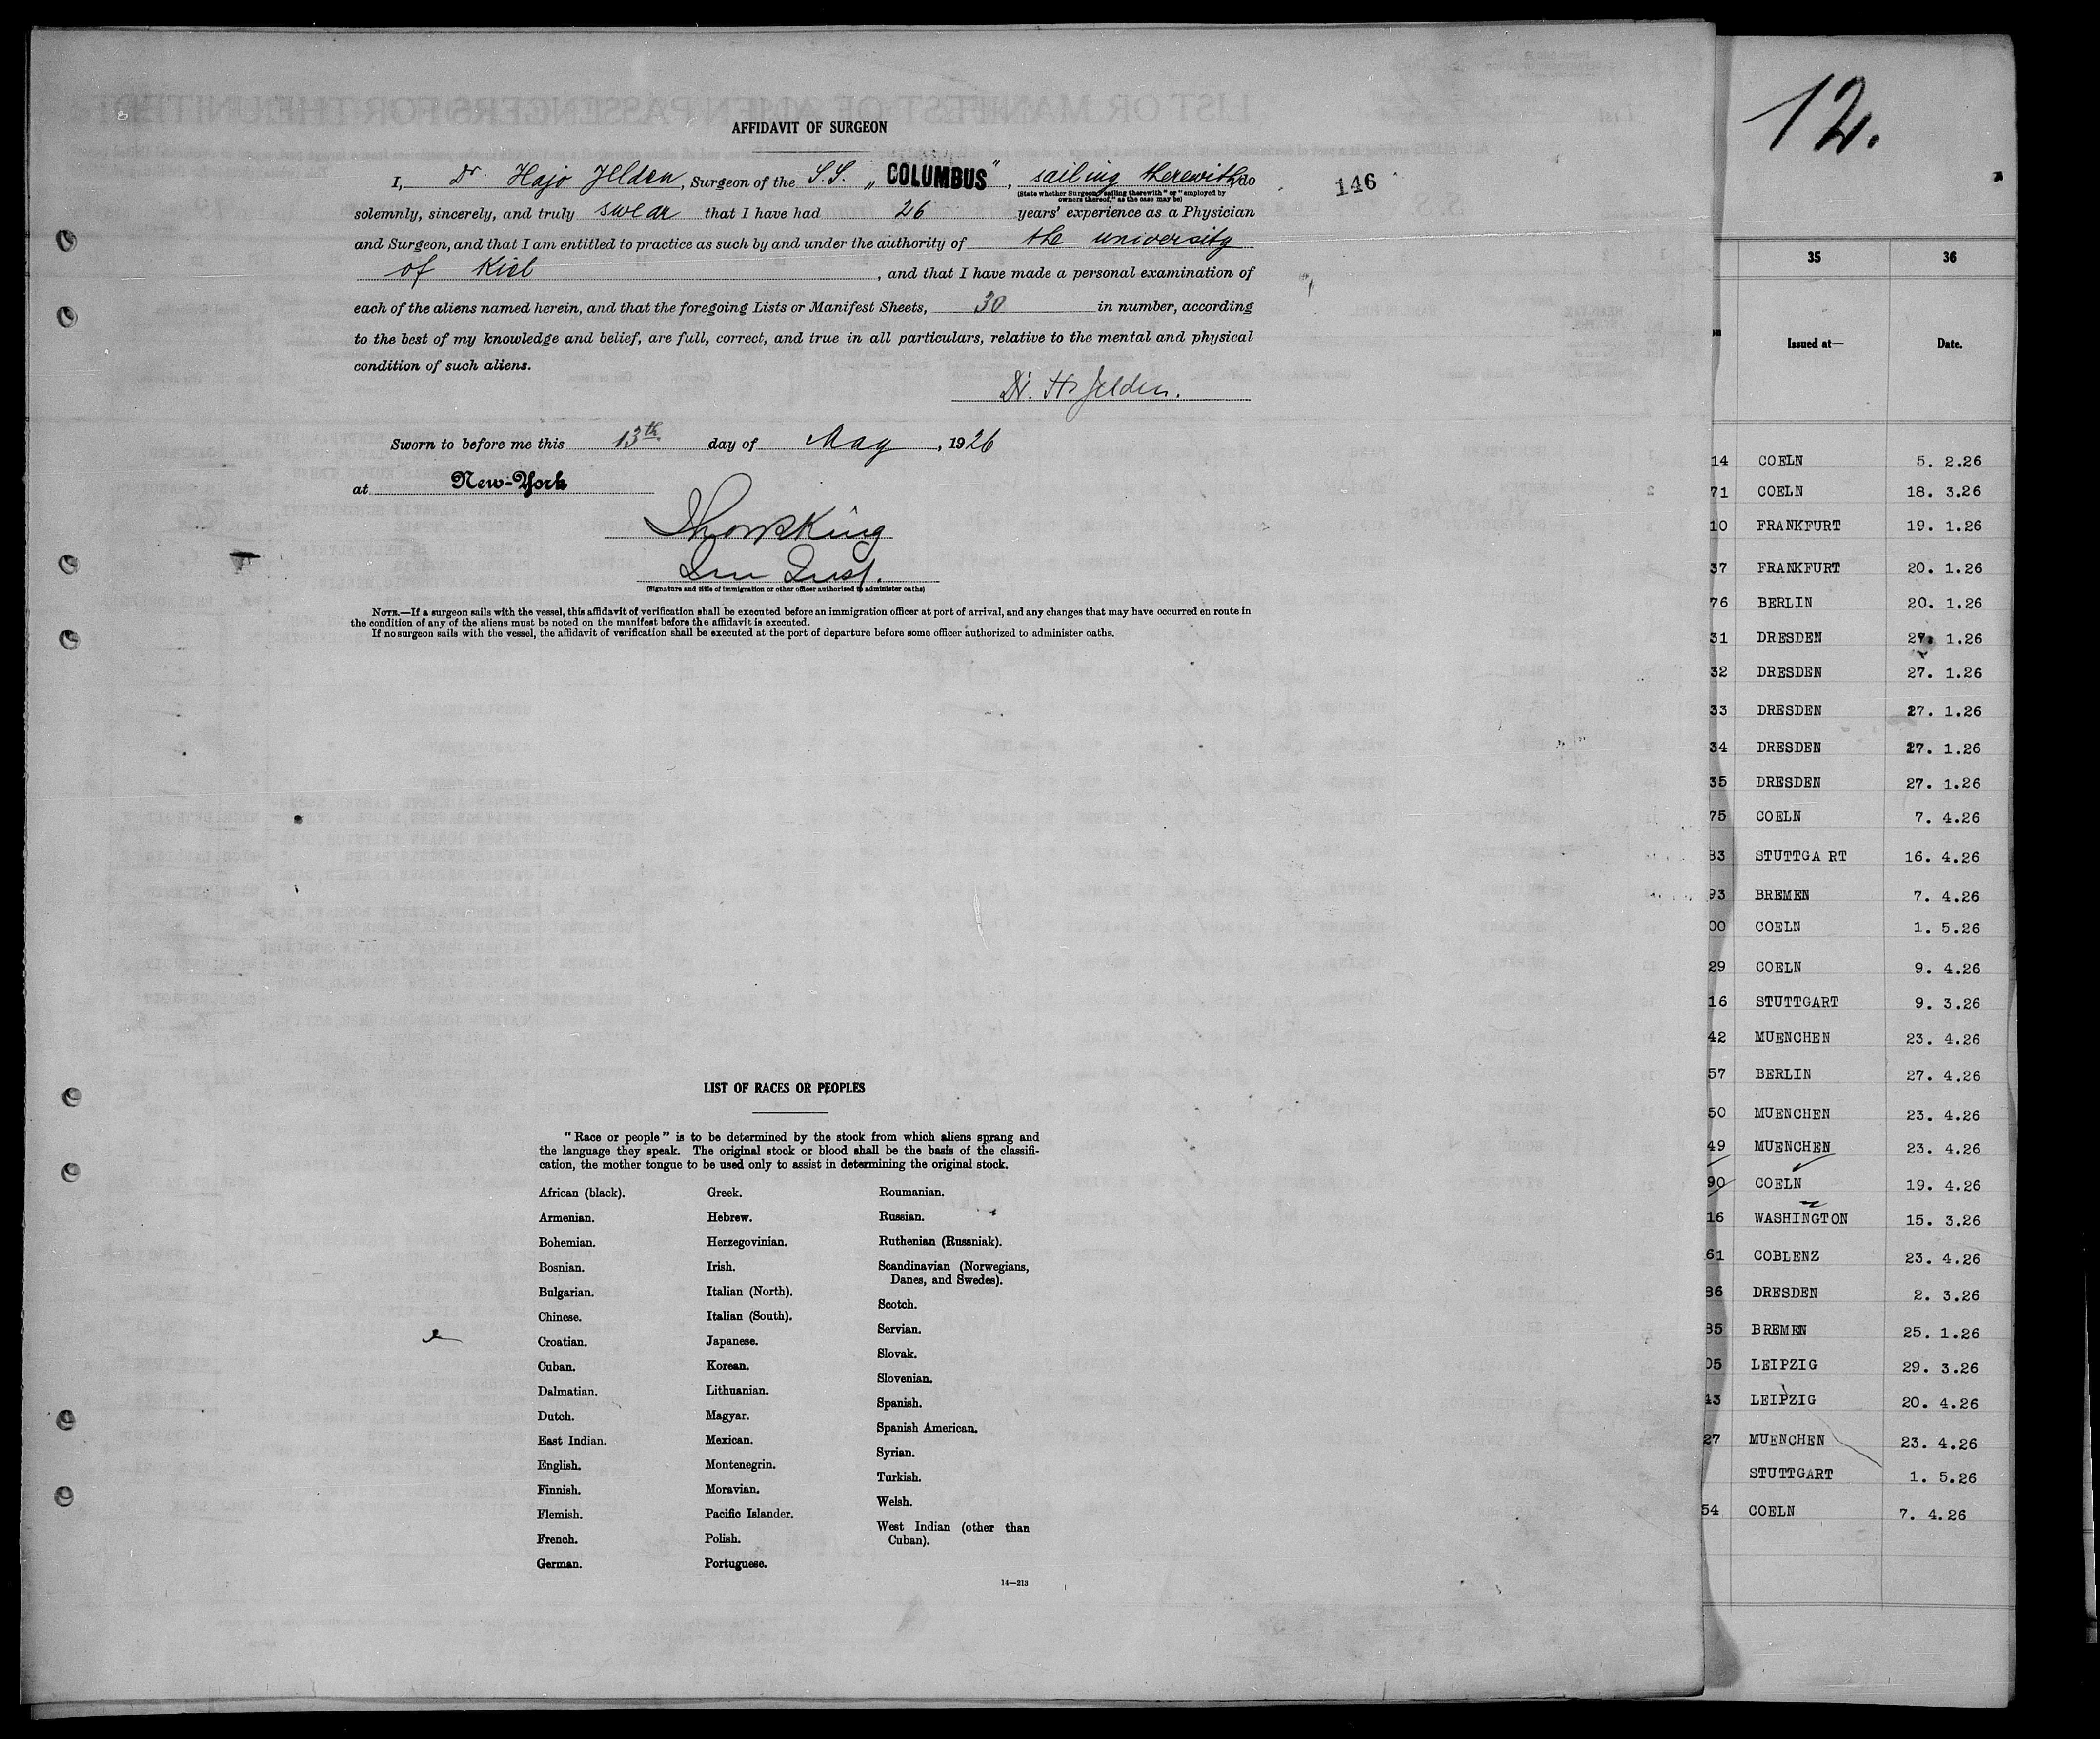 AFFIDAVIT OF SURGEON
I, Dr. Hajo Jelden, Surgeon of the S.S. „COLUMBUS", sailing therewith, do
(State whether Surgeon "sailing therewith" or "employed by
owners thereof," as the case may be)
solemnly, sincerely, and truly swear that I have had 26 years' experience as a Physician
and Surgeon, and that I am entitled to practice as such by and under the authority of the university
of Kiel, and that I have made a personal examination of
each of the aliens named herein, and that the foregoing Lists or Manifest Sheets, 30 in number, according
to the best of my knowledge and belief, are full, correct, and true in all particulars, relative to the mental and physical
condition of such aliens.
Dr. H. Jelden.
Sworn to before me this 13th day of May, 1926
at New-York
(Signature and title of immigration or other officer authorised to administer oaths)
NOTE.—If a surgeon sails with the vessel, this affidavit of verification shall be executed before an immigration officer at port of arrival, and any changes that may have occurred en route in
the condition of any of the aliens must be noted on the manifest before the affidavit is executed.
If no surgeon sails with the vessel, the affidavit of verification shall be executed at the port of departure before some officer authorized to administer oaths.
LIST OF RACES OR PEOPLES
"Race or people" is to be determined by the stock from which aliens sprang and
the language they speak. The original stock or blood shall be the basis of the classifi-
cation, the mother tongue to be used only to assist in determining the original stock.
African (black).
Armenian.
Bohemian.
Bosnian.
Bulgarian.
Chinese.
Croatian.
Cuban.
Dalmatian.
Dutch.
East Indian.
English.
Finnish.
Flemish.
French.
German.
Greek.
Hebrew.
Herzegovinian.
Irish.
Italian (North).
Italian (South).
Japanese.
Korean.
Lithuanian.
Magyar.
Mexican.
Montenegrin.
Moravian.
Pacific Islander.
Polish.
Portuguese.
Roumanian.
Russian.
Ruthenian (Russniak).
Scandinavian (Norwegians,
Danes, and Swedes).
Scotch.
Servian.
Slovak.
Slovenian.
Spanish.
Spanish American.
Syrian.
Turkish.
Welsh.
West Indian (other than
Cuban).
14—213
146
12.
35 36
Issued at— Date.
14 COELN 5. 2.26
71 COELN 18. 3.26
10 FRANKFURT 19. 1.26
37 FRANKFURT 20. 1.26
76 BERLIN 20. 1.26
31 DRESDEN 27. 1.26
32 DRESDEN 27. 1.26
33 DRESDEN 27. 1.26
34 DRESDEN 27. 1.26
35 DRESDEN 27. 1.26
75 COELN 7. 4.26
83 STUTTGA RT 16. 4.26
93 BREMEN 7. 4.26
00 COELN 1. 5.26
29 COELN 9. 4.26
16 STUTTGART 9. 3.26
42 MUENCHEN 23. 4.26
57 BERLIN 27. 4.26
50 MUENCHEN 23. 4.26
49 MUENCHEN 23. 4.26
90 COELN 19. 4.26
16 WASHINGTON 15. 3.26
61 COBLENZ 23. 4.26
86 DRESDEN 2. 3.26
85 BREMEN 25. 1.26
05 LEIPZIG 29. 3.26
43 LEIPZIG 20. 4.26
27 MUENCHEN 23. 4.26
STUTTGART 1. 5.26
54 COELN 7. 4.26